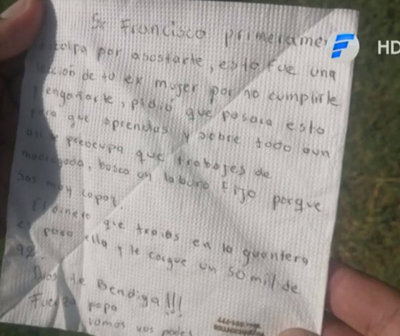 Sr Francisco primerame
disculpa por asustarte, esto fue una
lección de tu ex mujer por no cumplirle
engañarte, pidió que pasara esto
para que aprendas y sobre todo aun
le preocupa que trabajes de
madrugada, busca un laburo fijo porque
sos muy capaz
El dinero que traias en la guantera
es para ella y le cargue un 50 mil de
Dios te Bendiga!!!
Fuerza papa
vamos vos podes
HD